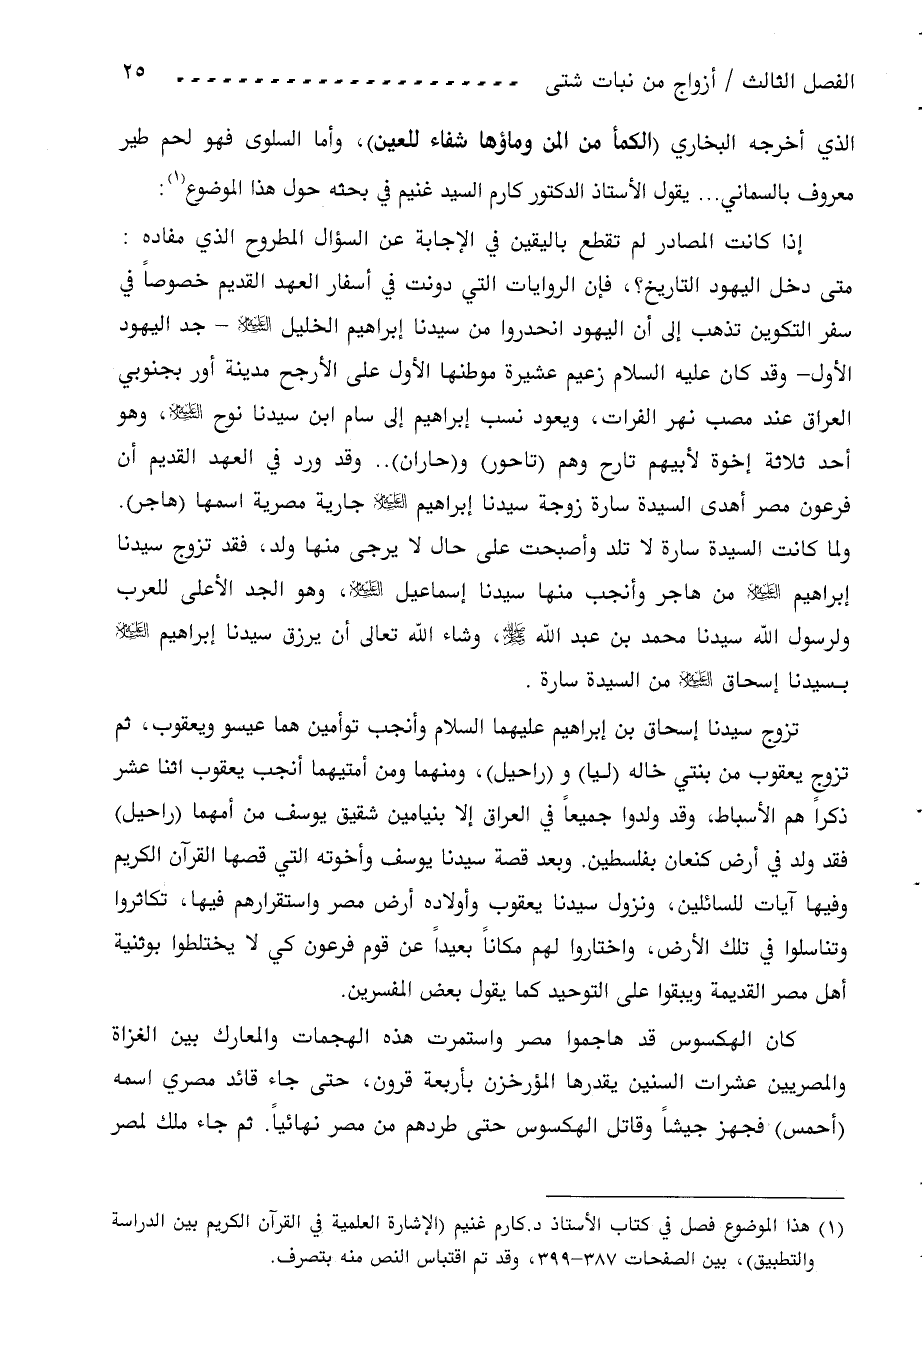 الفصل الثالث / أزواج من نبات شتى ---------------------- ٢٥
الذي أخرجه البخاري (الكمأ من المن وماؤها شفاء للعين)، وأما السلوى فهو لحم طير
معروف بالسماني... يقول الأستاذ الدكتور كارم السيد غنيم في بحثه حول هذا الموضوع(١):
إذا كانت المصادر لم تقطع باليقين في الإجابة عن السؤال المطروح الذي مفاده :
متى دخل اليهود التاريخ؟، فإن الروايات التي دونت في أسفار العهد القديم خصوصاً في
سفر التكوين تذهب إلى أن اليهود انحدروا من سيدنا إبراهيم الخليل عليه السلام – جد اليهود
الأول– وقد كان عليه السلام زعيم عشيرة موطنها الأول على الأرجح مدينة أور بجنوبي
العراق عند مصب نهر الفرات، ويعود نسب إبراهيم إلى سام ابن سيدنا نوح عليه السلام، وهو
أحد ثلاثة إخوة لأبيهم تارح وهم (تاحور) و(حاران).. وقد ورد في العهد القديم أن
فرعون مصر أهدى السيدة سارة زوجة سيدنا إبراهيم عليه السلام جارية مصرية اسمها (هاجر).
ولما كانت السيدة سارة لا تلد وأصبحت على حال لا يرجى منها ولد، فقد تزوج سيدنا
إبراهيم عليه السلام من هاجر وأنجب منها سيدنا إسماعيل عليه السلام، وهو الجد الأعلى للعرب
ولرسول الله سيدنا محمد بن عبد الله ﷺ، وشاء الله تعالى أن يرزق سيدنا إبراهيم عليه السلام
بـسيدنا إسحاق عليه السلام من السيدة سارة .
تزوج سيدنا إسحاق بن إبراهيم عليهما السلام وأنجب توأمين هما عيسو ويعقوب، ثم
تزوج يعقوب من بنتي خاله (ليا) و (راحيل)، ومنهما ومن أمتيهما أنجب يعقوب اثنا عشر
ذكراً هم الأسباط، وقد ولدوا جميعاً في العراق إلا بنيامين شقيق يوسف من أمهما (راحيل)
فقد ولد في أرض كنعان بفلسطين. وبعد قصة سيدنا يوسف وأخوته التي قصها القرآن الكريم
وفيها آيات للسائلين، ونزول سيدنا يعقوب وأولاده أرض مصر واستقرارهم فيها، تكاثروا
وتناسلوا في تلك الأرض، واختاروا لهم مكاناً بعيداً عن قوم فرعون كي لا يختلطوا بوثنية
أهل مصر القديمة ويبقوا على التوحيد كما يقول بعض المفسرين.
كان الهكسوس قد هاجموا مصر واستمرت هذه الهجمات والمعارك بين الغزاة
والمصريين عشرات السنين يقدرها المؤرخزن بأربعة قرون، حتى جاء قائد مصري اسمه
(أحمس) فجهز جيشاً وقاتل الهكسوس حتى طردهم من مصر نهائياً. ثم جاء ملك لمصر
(١) هذا الموضوع فصل في كتاب الأستاذ د.كارم غنيم (الإشارة العلمية في القرآن الكريم بين الدراسة
والتطبيق)، بين الصفحات ٣٨٧–٣٩٩، وقد تم اقتباس النص منه بتصرف.